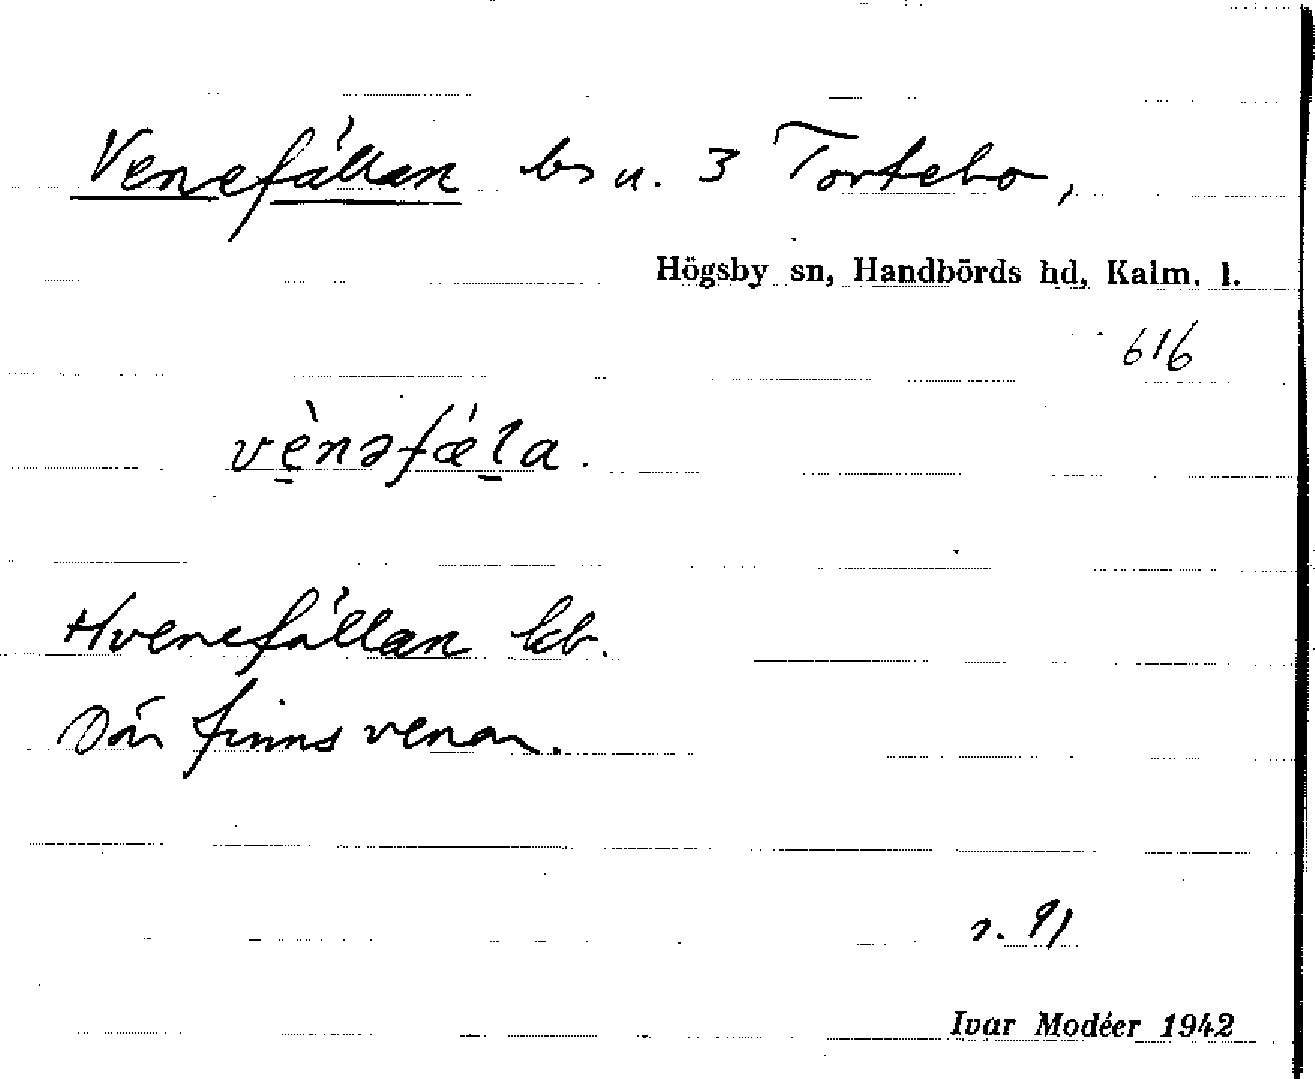 Venefällan bs u. 3 Tortebo,
Högsby sn, Handbörds hd, Kalm. l.
616
vè̱nəfæ´ḻa.
Hvenefällan kb.
Där finns venar.
s. 91
Ivar Modéer 1942